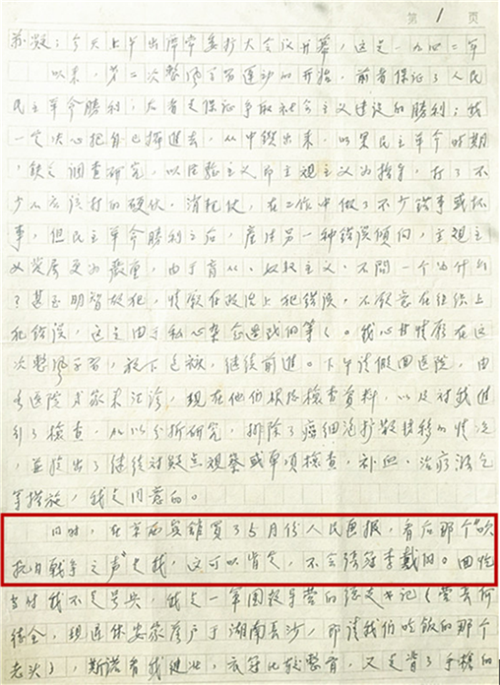 第 1 页
苏凝：今天上午出席常委扩大会议开幕，这是一九四二年
以来，第二次整风学习运动的开始，前者保证了人民
民主革命胜利，后者是保证争取社会主义建设的胜利；我
一定决心把自己摆进去，从中钻出来，如果民主革命时期，
缺乏调查研究，以经验主义即主观主义为指导，打了不
少不应该打的硬仗、消耗仗，在工作中做了不少错事或坏
事，但民主革命胜利之后，产生另一种错误倾向，主观主
义发展更为严重，由于盲从、奴奴主义，不问一个为什么
？甚至明知故犯，情愿在政治上犯错误，不愿意在组织上
犯错误，这主由于私心杂念造成的等等。我心甘情愿在这
次整风学习，放下包袱，继续前进。下午请假回医院，由
医院专家来汇诊，现在他们根据检查资料，以及对我进
行了检查，加以分析研究，排除了癌细胞扩散转移的情况
，并提出了继续对疑点观察或单项检查，补血、治疗消化
等措施，我是同意的。
同时，在京西宾馆买了5月份人民画报，看后那个吹
抗日战争之声"是我，这可以肯定，不会
当时我不是号兵，我是一军团教导营的总支书记（营长何
德全，现退休安家落户于湖南长沙，即请我们吃饭的那个
老头），斯诺看我健壮，衣冠比较整齐，又是背了手枪的